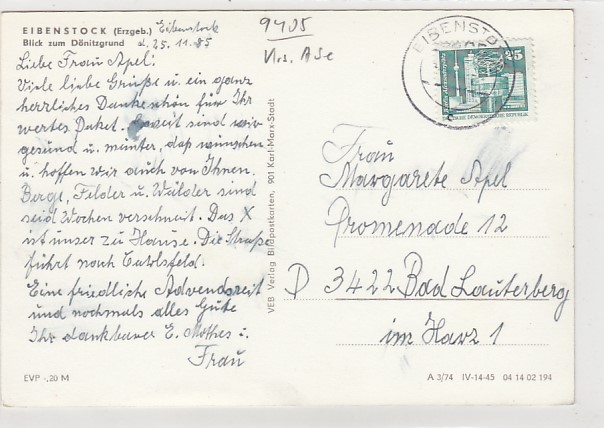 EIBENSTOCK (Erzgeb.) Eibenstock
Blick zum Dönitzgrund d. 25.11.85
Liebe Frau Apel!
Viele liebe Grüße u. ein ganz
herrliches Dankeschön für Ihr
wertes Paket. Soweit sind wir
gesund u. munter, daß wünschen
u. hoffen wir auch von Ihnen.
Berge, Felder u. Wälder sind
seid Wochen verschneit. Das X
ist unser zu Hause. Die Straße
führt nach Carlsfeld.
Eine friedliche Adventszeit
und nochmals alles Gute
Ihr dankbarer E. Mothes u.
Frau
EVP -,20 M
VEB Verlag Bildpostkarten, 901 Karl-Marx-Stadt
9405
EIBENSTO
25
Frau
Margarete Apel
Promenade 12
D 3422 Bad Lauterberg
im Harz 1
A 3/74 IV-14-45 04 14 02 194